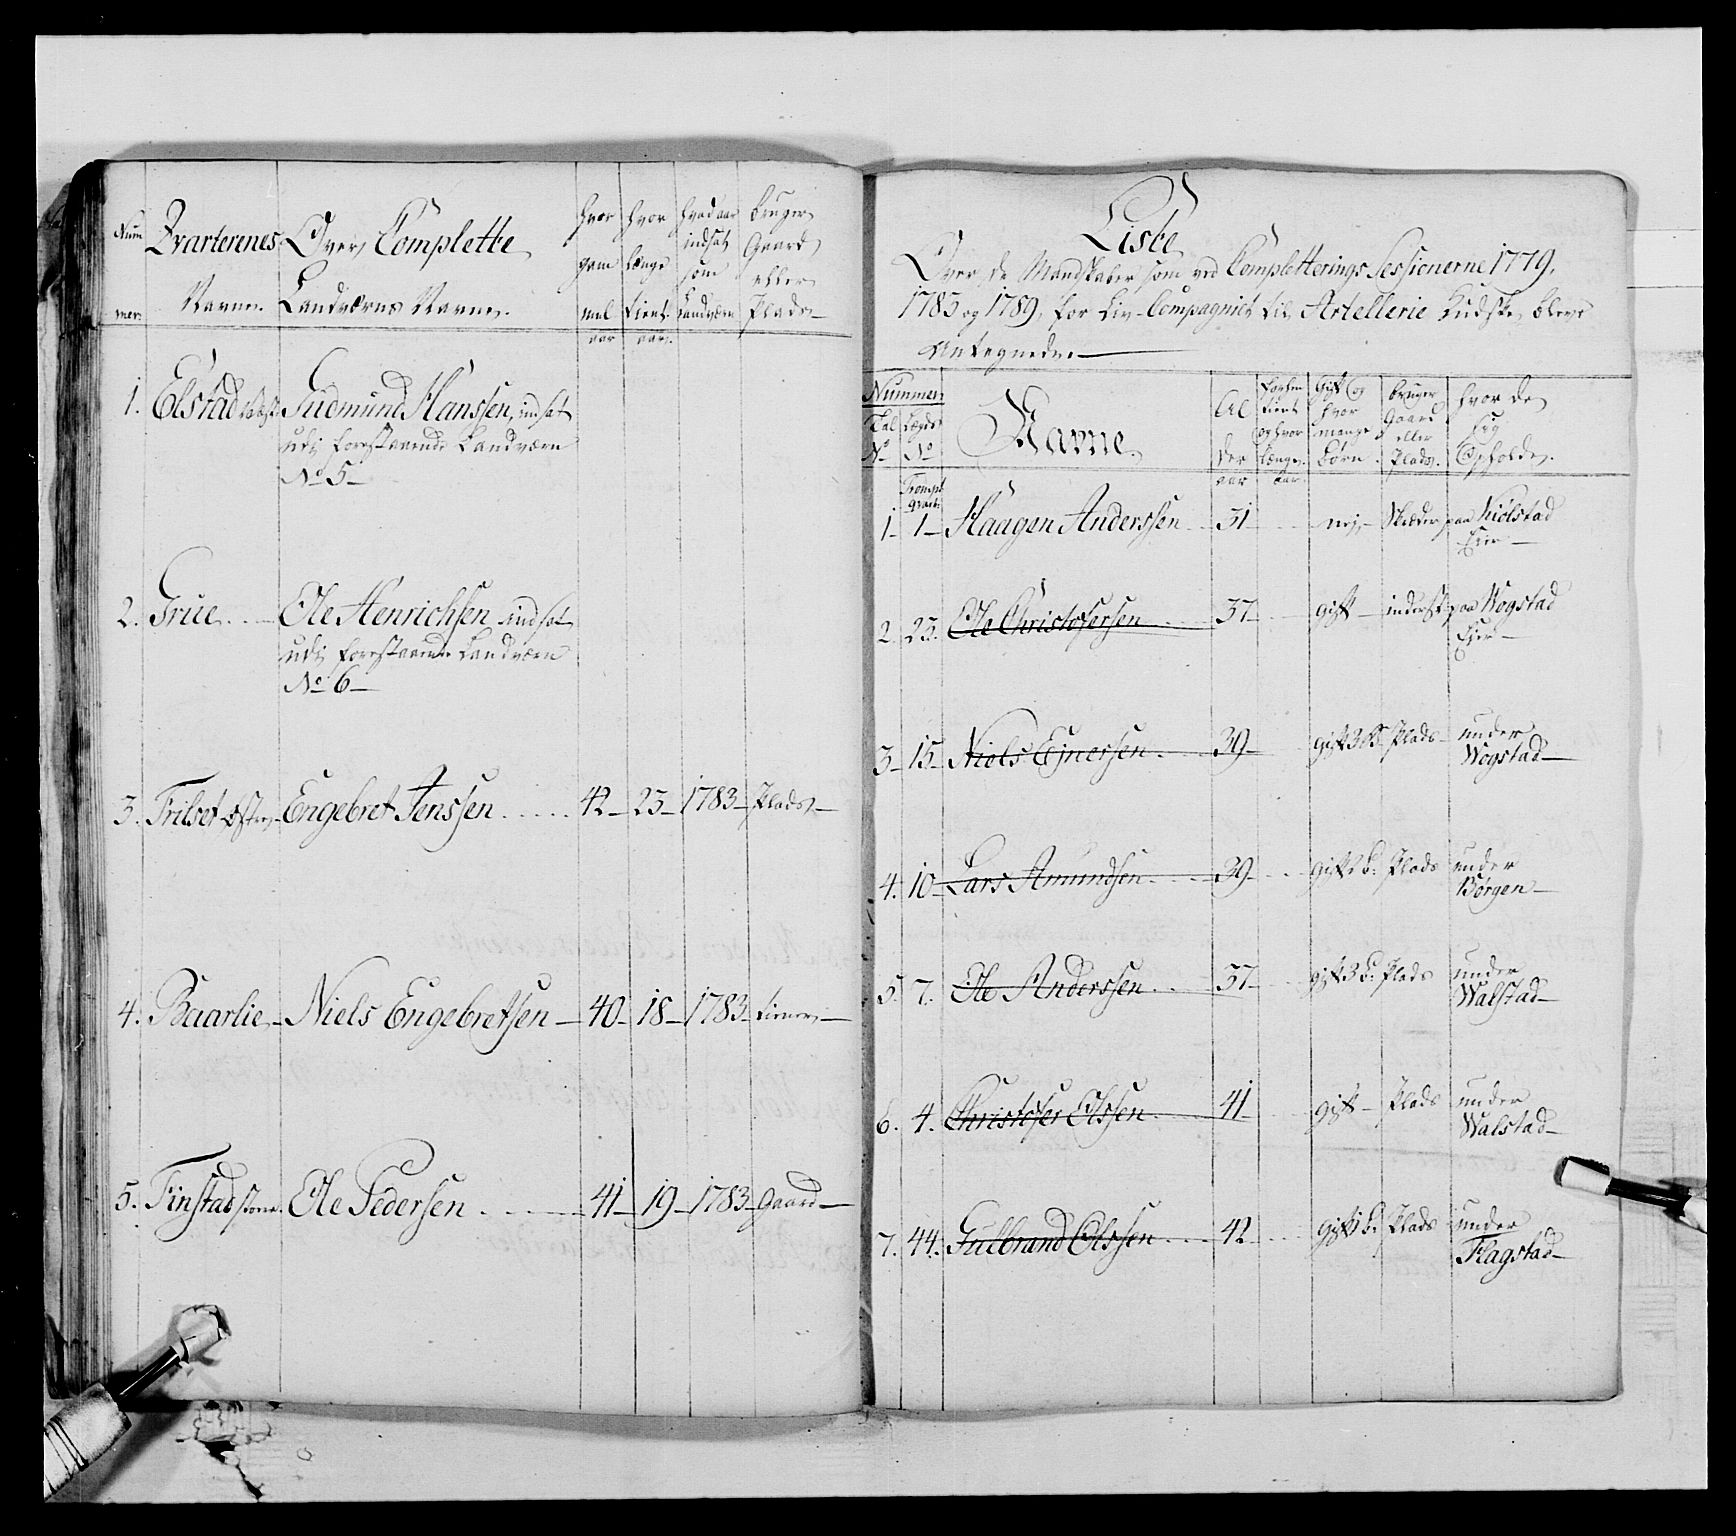 Num mer. Qvarterenes Navne. Over Complette Landværns Navne. hvor gam mel aar hvor længe tient aar. hvad aar indsat som Landværn bruger Gaard eller Plads
1. Elstad Gudmund Hanssen, indsat
udi forestaaende Landværn
No 5
2. Grue Ole Henrichsen indsat
udi forestaaende Landværn
No 6
3. Trilset østre Engebret Jenssen 42 23 1783 Plads
4. Baarlie Niels Engebretsen 40 18 1783 tiener
5. Finstad store Ole Pedersen 41 19 1783 Gaard
Liste
Over de Mandskaber som ved Completterings Sessionerne 1779,
1785 og 1789, for Liv-Compagniet til Artellerie Kudske bleve
Antegnede
Nummer Tal No Lægds No Navne. Al der aar tient og hvor længe. aar Gift og hvor mange børn. bruger Gaard eller Plads. hvor de sig Opholde.
1 1 Haagen Anderssen 31 nej Skræder paa Kiølstad
Ejer
2. 23. Ole Christofersen 37 gift inderst paa Wogstad
Ejer
3 15 Niels Ejnersen 39 gift 3 B. Plads under
Wogstad
4. 10 Lars Amundsen 39 gift 1 b. Plads under
Børgen
5. 7. Ole Anderssen 37 gift 3 b. Plads under
Walstad
6. 4. Christofer Olssen 41 gift Plads under
Walstad
7. 44. Gulbrand Olssen 42 gift 1 b. Plads under
Flagstad